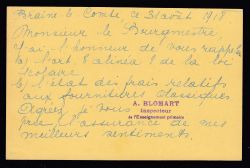 Braine le Comte ce 31 août 1918
Monsieur le Bourgmestre,
J'ai l'honneur de vous rappeler
l'art. alinéa 1 de la loi
scolaire
l'état des frais relatifs
aux fournitures classiques
Agréez, je vous
prie, l'assurance de mes
meilleurs sentiments.
A. BLOMART
Inspecteur
de l'Enseignement primaire